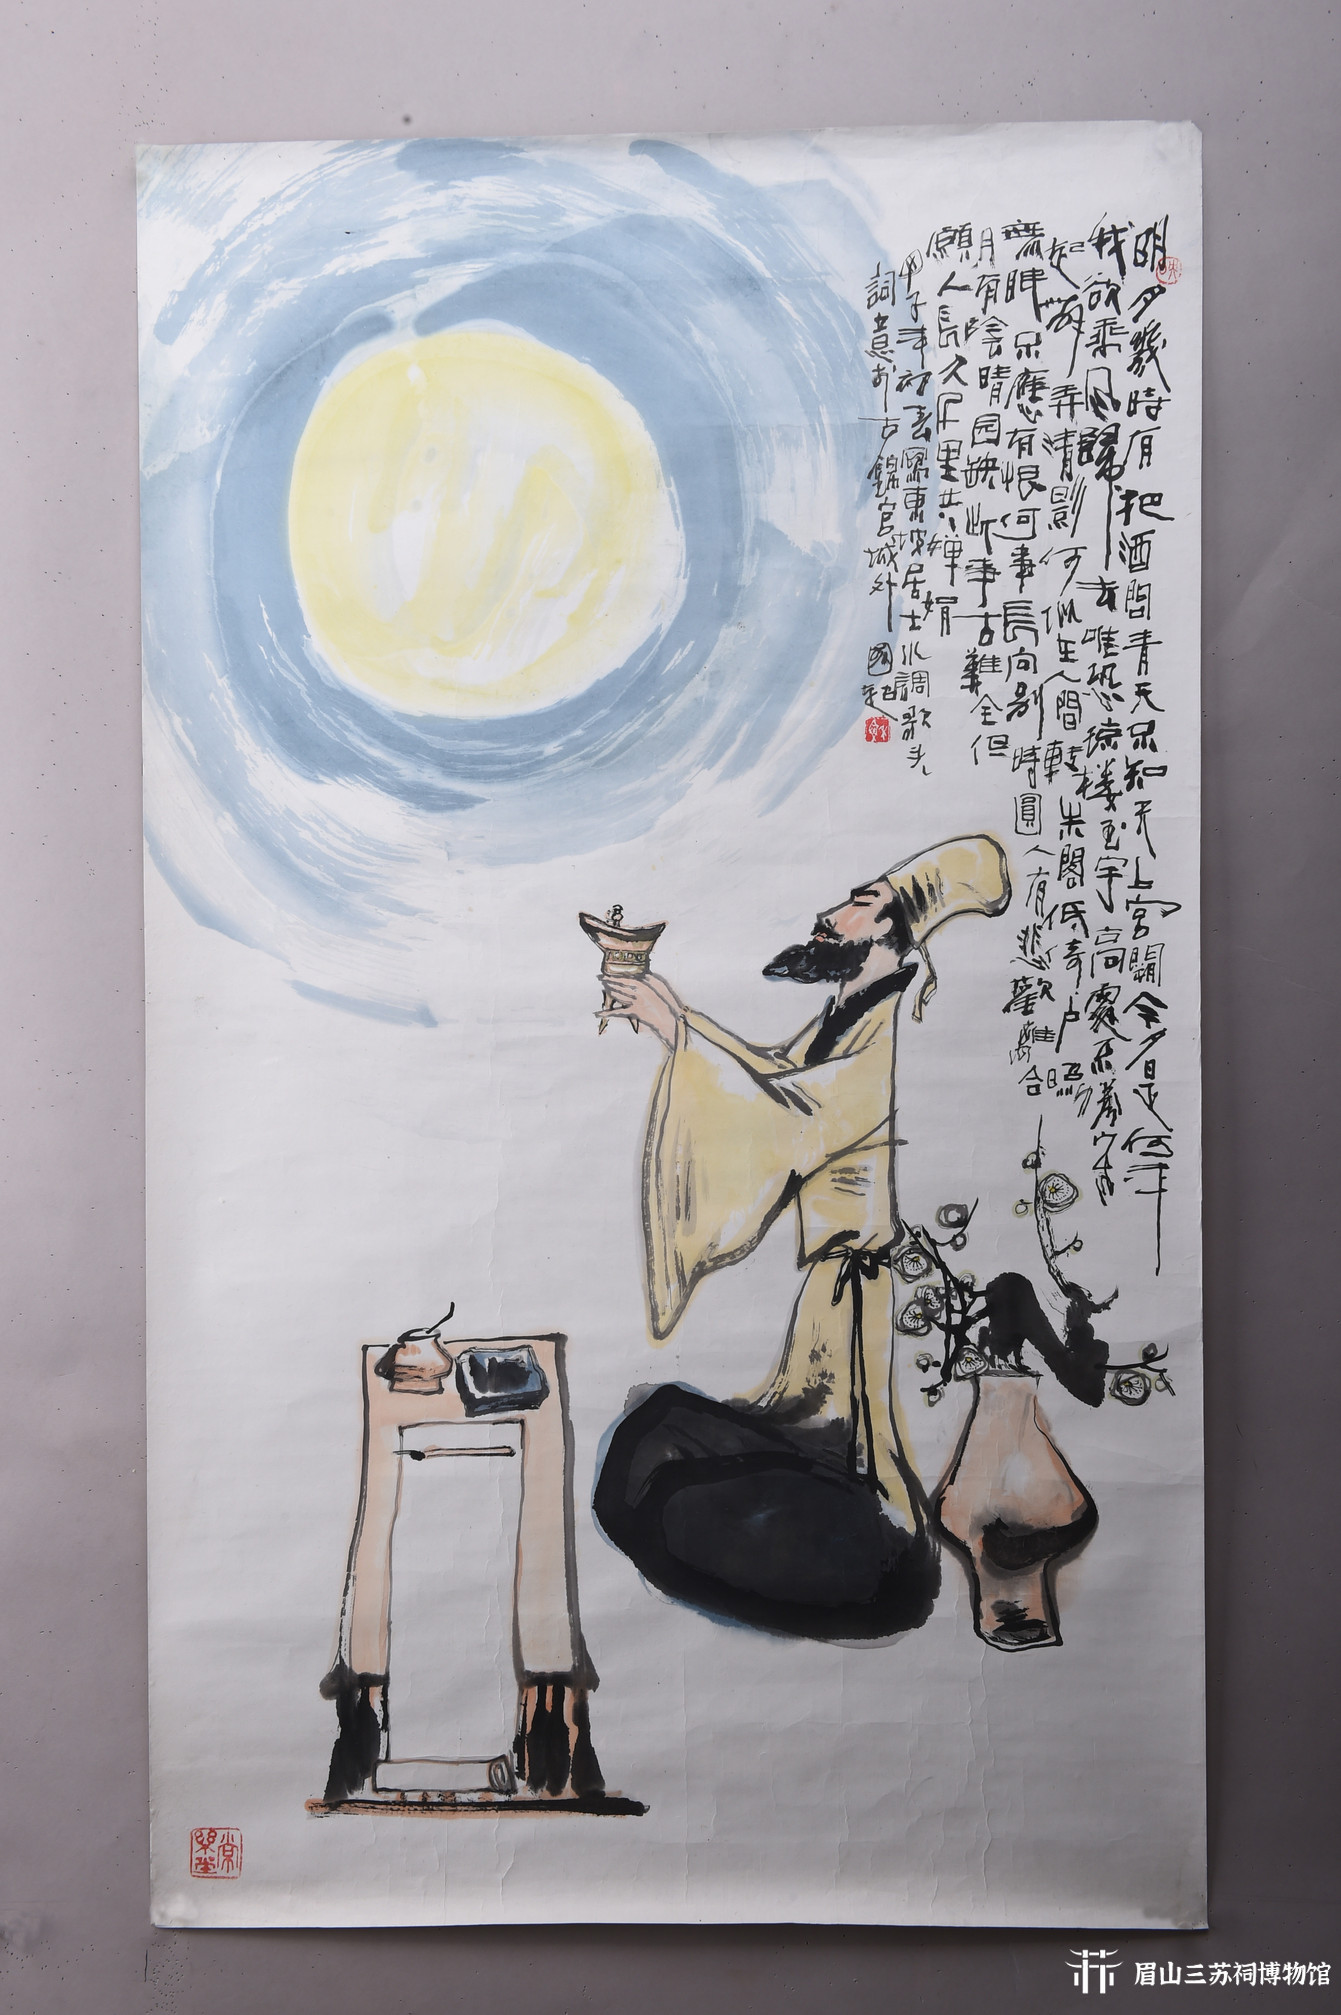 明月幾時有把酒問青天不知天上宮闕今夕是何年
我欲乘風歸去唯恐瓊楼玉宇高處不勝寒
起舞弄清影何似在人間轉朱閣低奇户照
無眠不應有恨何事長向别時圓人有悲歡離合
月有陰晴园缺此事古難全但
願人長久千里共嬋娟
甲子年初春寫東坡居士水調歌头
詞意於古錦官城外 國
常樂
眉山三苏祠博物馆